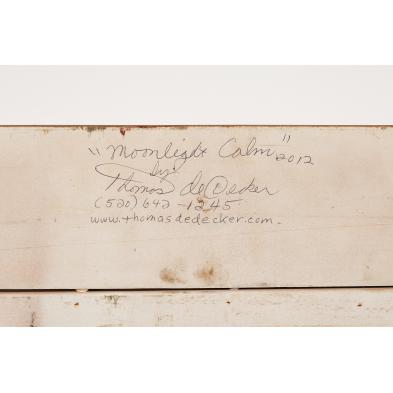 "Moonlight Calm" 2012
by:
Thomas deDecker
(520) 642-1245
www.thomasdedecker.com.